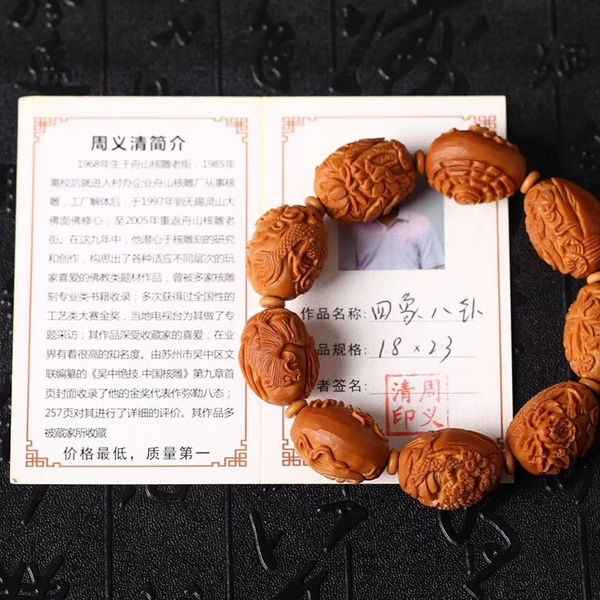 周义清简介
1968年生于舟山核雕老街，1985年
离校后就进入村办企业舟山核雕厂从事核
雕，工厂解体后，于1997年到无锡灵山大
佛面佛修心；至2005年重返舟山核雕老
街。在这九年中，他潜心于核雕刻的研究
和创作，构思出了各种适应不同层次的玩
家喜爱的佛教类题材作品，曾被多家核雕
刻专业类书籍收录；多次获得过全国性的
工艺类大赛金奖，当地电视台为其做了专
题采访；其作品深受收藏家的喜爱，在业
界有着很高的知名度。由苏州市吴中区文
联编纂的《吴中绝技·中国核雕》第九章首
页封面收录了他的金奖代表作弥勒八态；
257页对其进行了详细的评价。其作品多
被藏家所收藏
价格最低，质量第一
作品名称:四象八卦
品规格:18×23
者签名:
周义清印